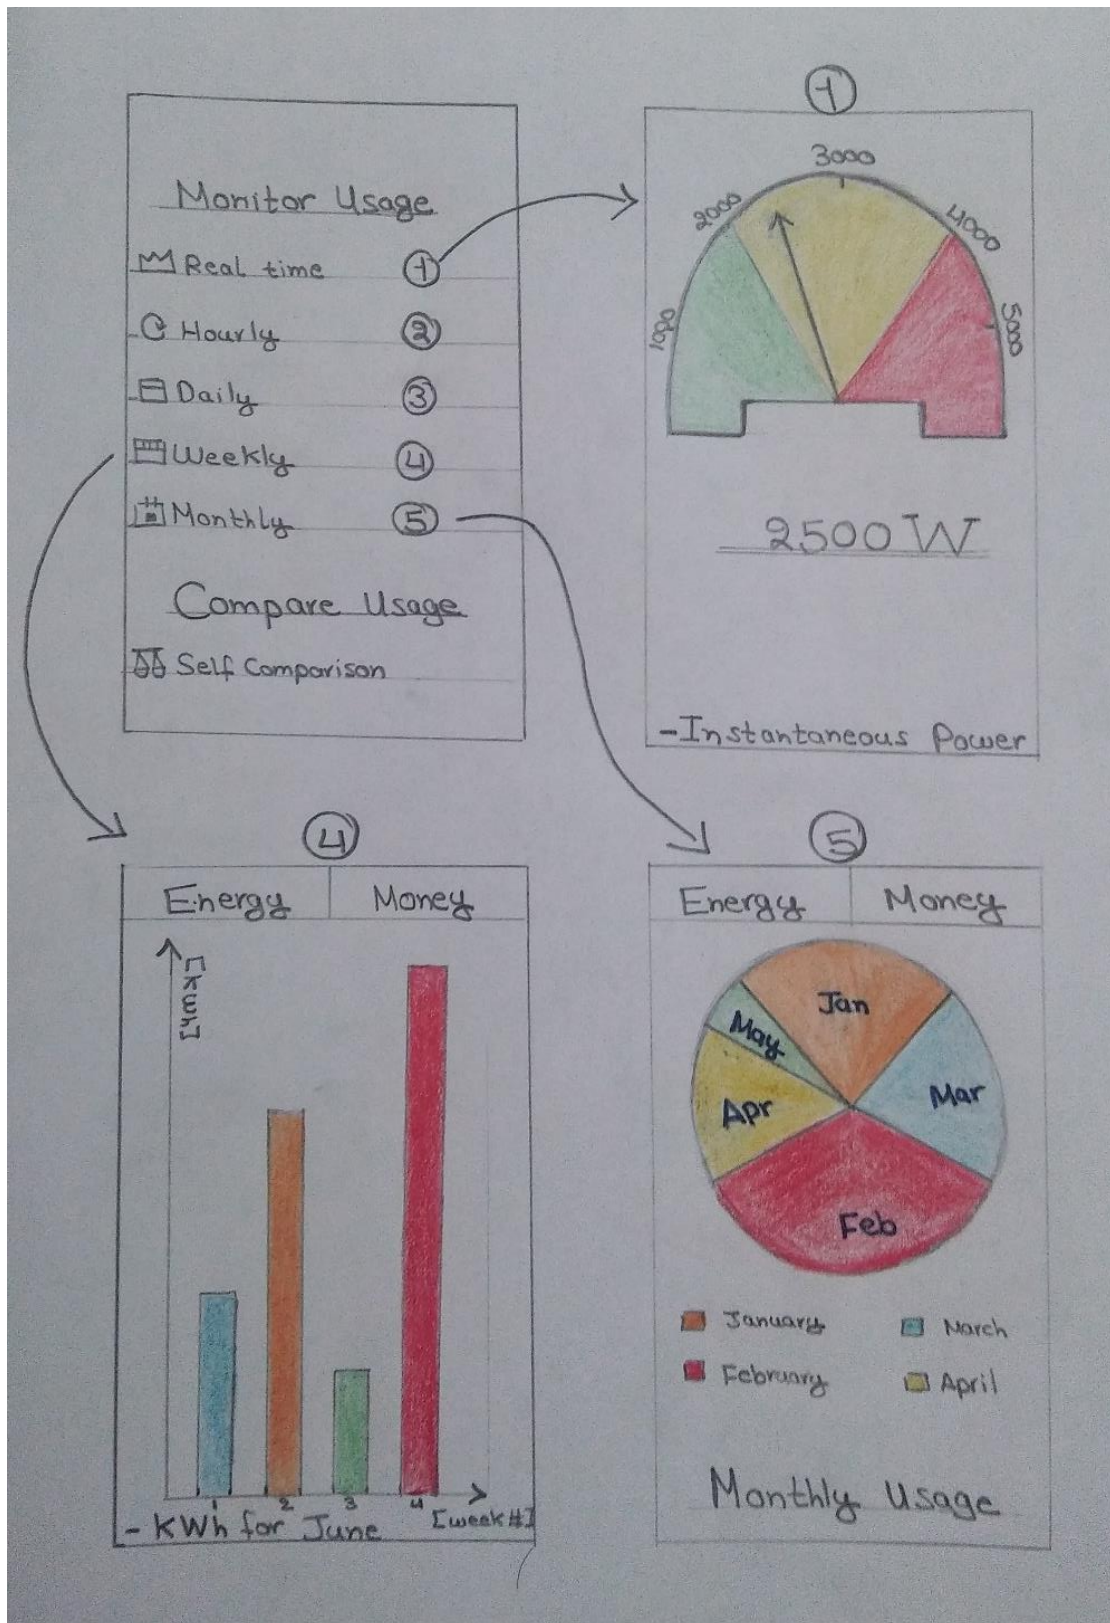 Monitor Usage
Real time 1
Hourly 2
Daily 3
Weekly 4
Monthly 5
Compare Usage
Self Comparison
1
1000
2000
3000
4000
5000
2500 W
-Instantaneous Power
4
Energy Money
[kwh]
1 2 3 4
[week#]
- KWh for June
5
Energy Money
Jan
May
Mar
Apr
Feb
January March
February April
Monthly Usage